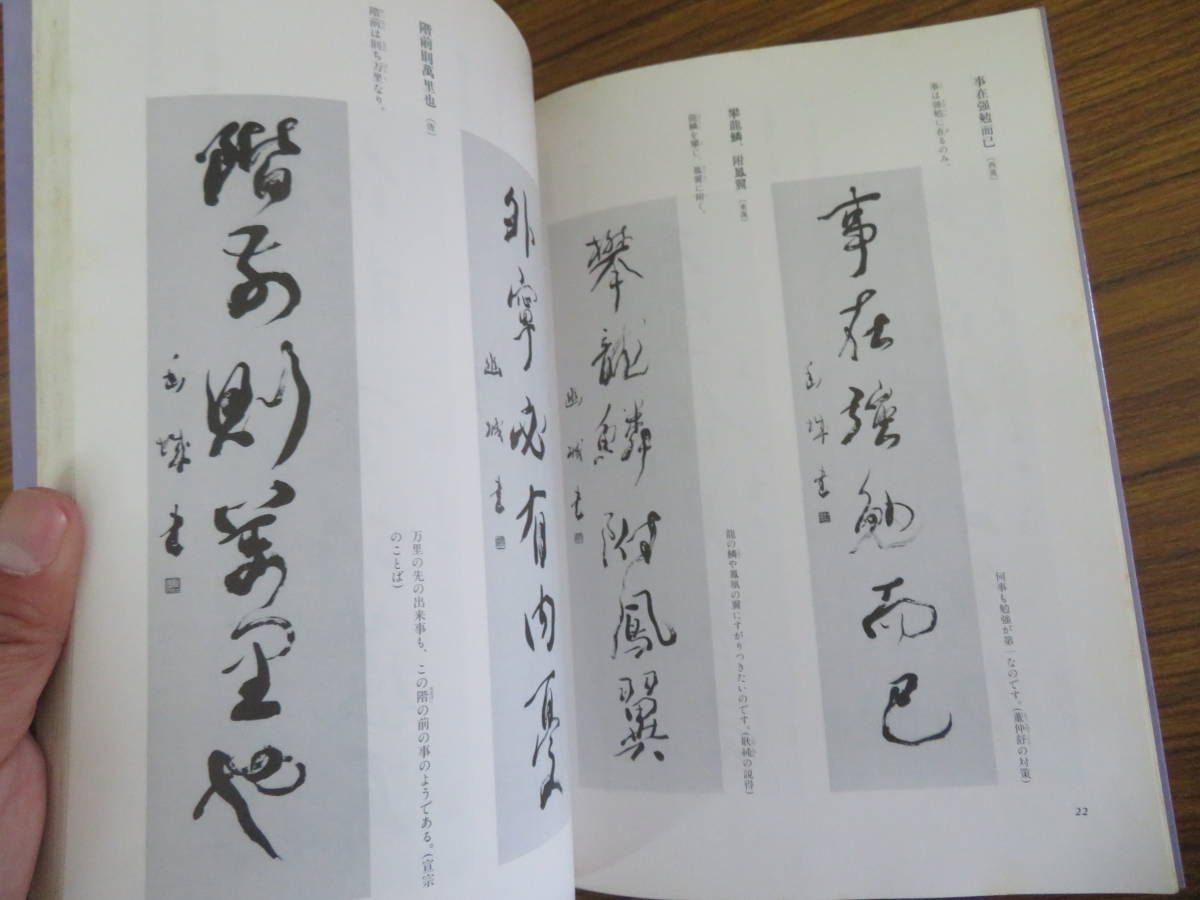 事在强勉而已 (西漢)
事は强勉に在るのみ。
事在强勉而已
書
何事も勉強が第一なのです。(董仲舒の対策)
攀龍鱗、附鳳翼 (東漢)
龍鱗を攀じ、鳳翼に附く。
攀龍鱗附鳳翼
幽城書
龍の鱗や鳳凰の翼にすがりつきたいのです。(耿純の説得)
22
外寧必有内憂
幽城書
階前則萬里也 (唐)
階前は則ち万里なり。
階前則萬里也
城書
万里の先の出来事も、この階の前の事のようである。(宣宗
のことば)